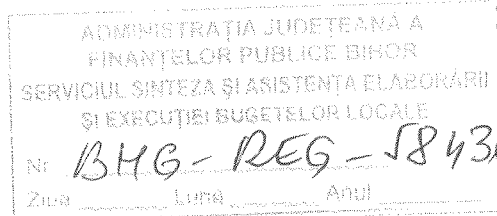 ADMINISTRAȚIA JUDEȚEANĂ A
FINANȚELOR PUBLICE BIHOR
SERVICIUL SINTEZA ȘI ASISTENȚA ELABORĂRII
ȘI EXECUȚIEI BUGETELOR LOCALE
Nr. BHG - REG - 5843
Ziua Luna Anul